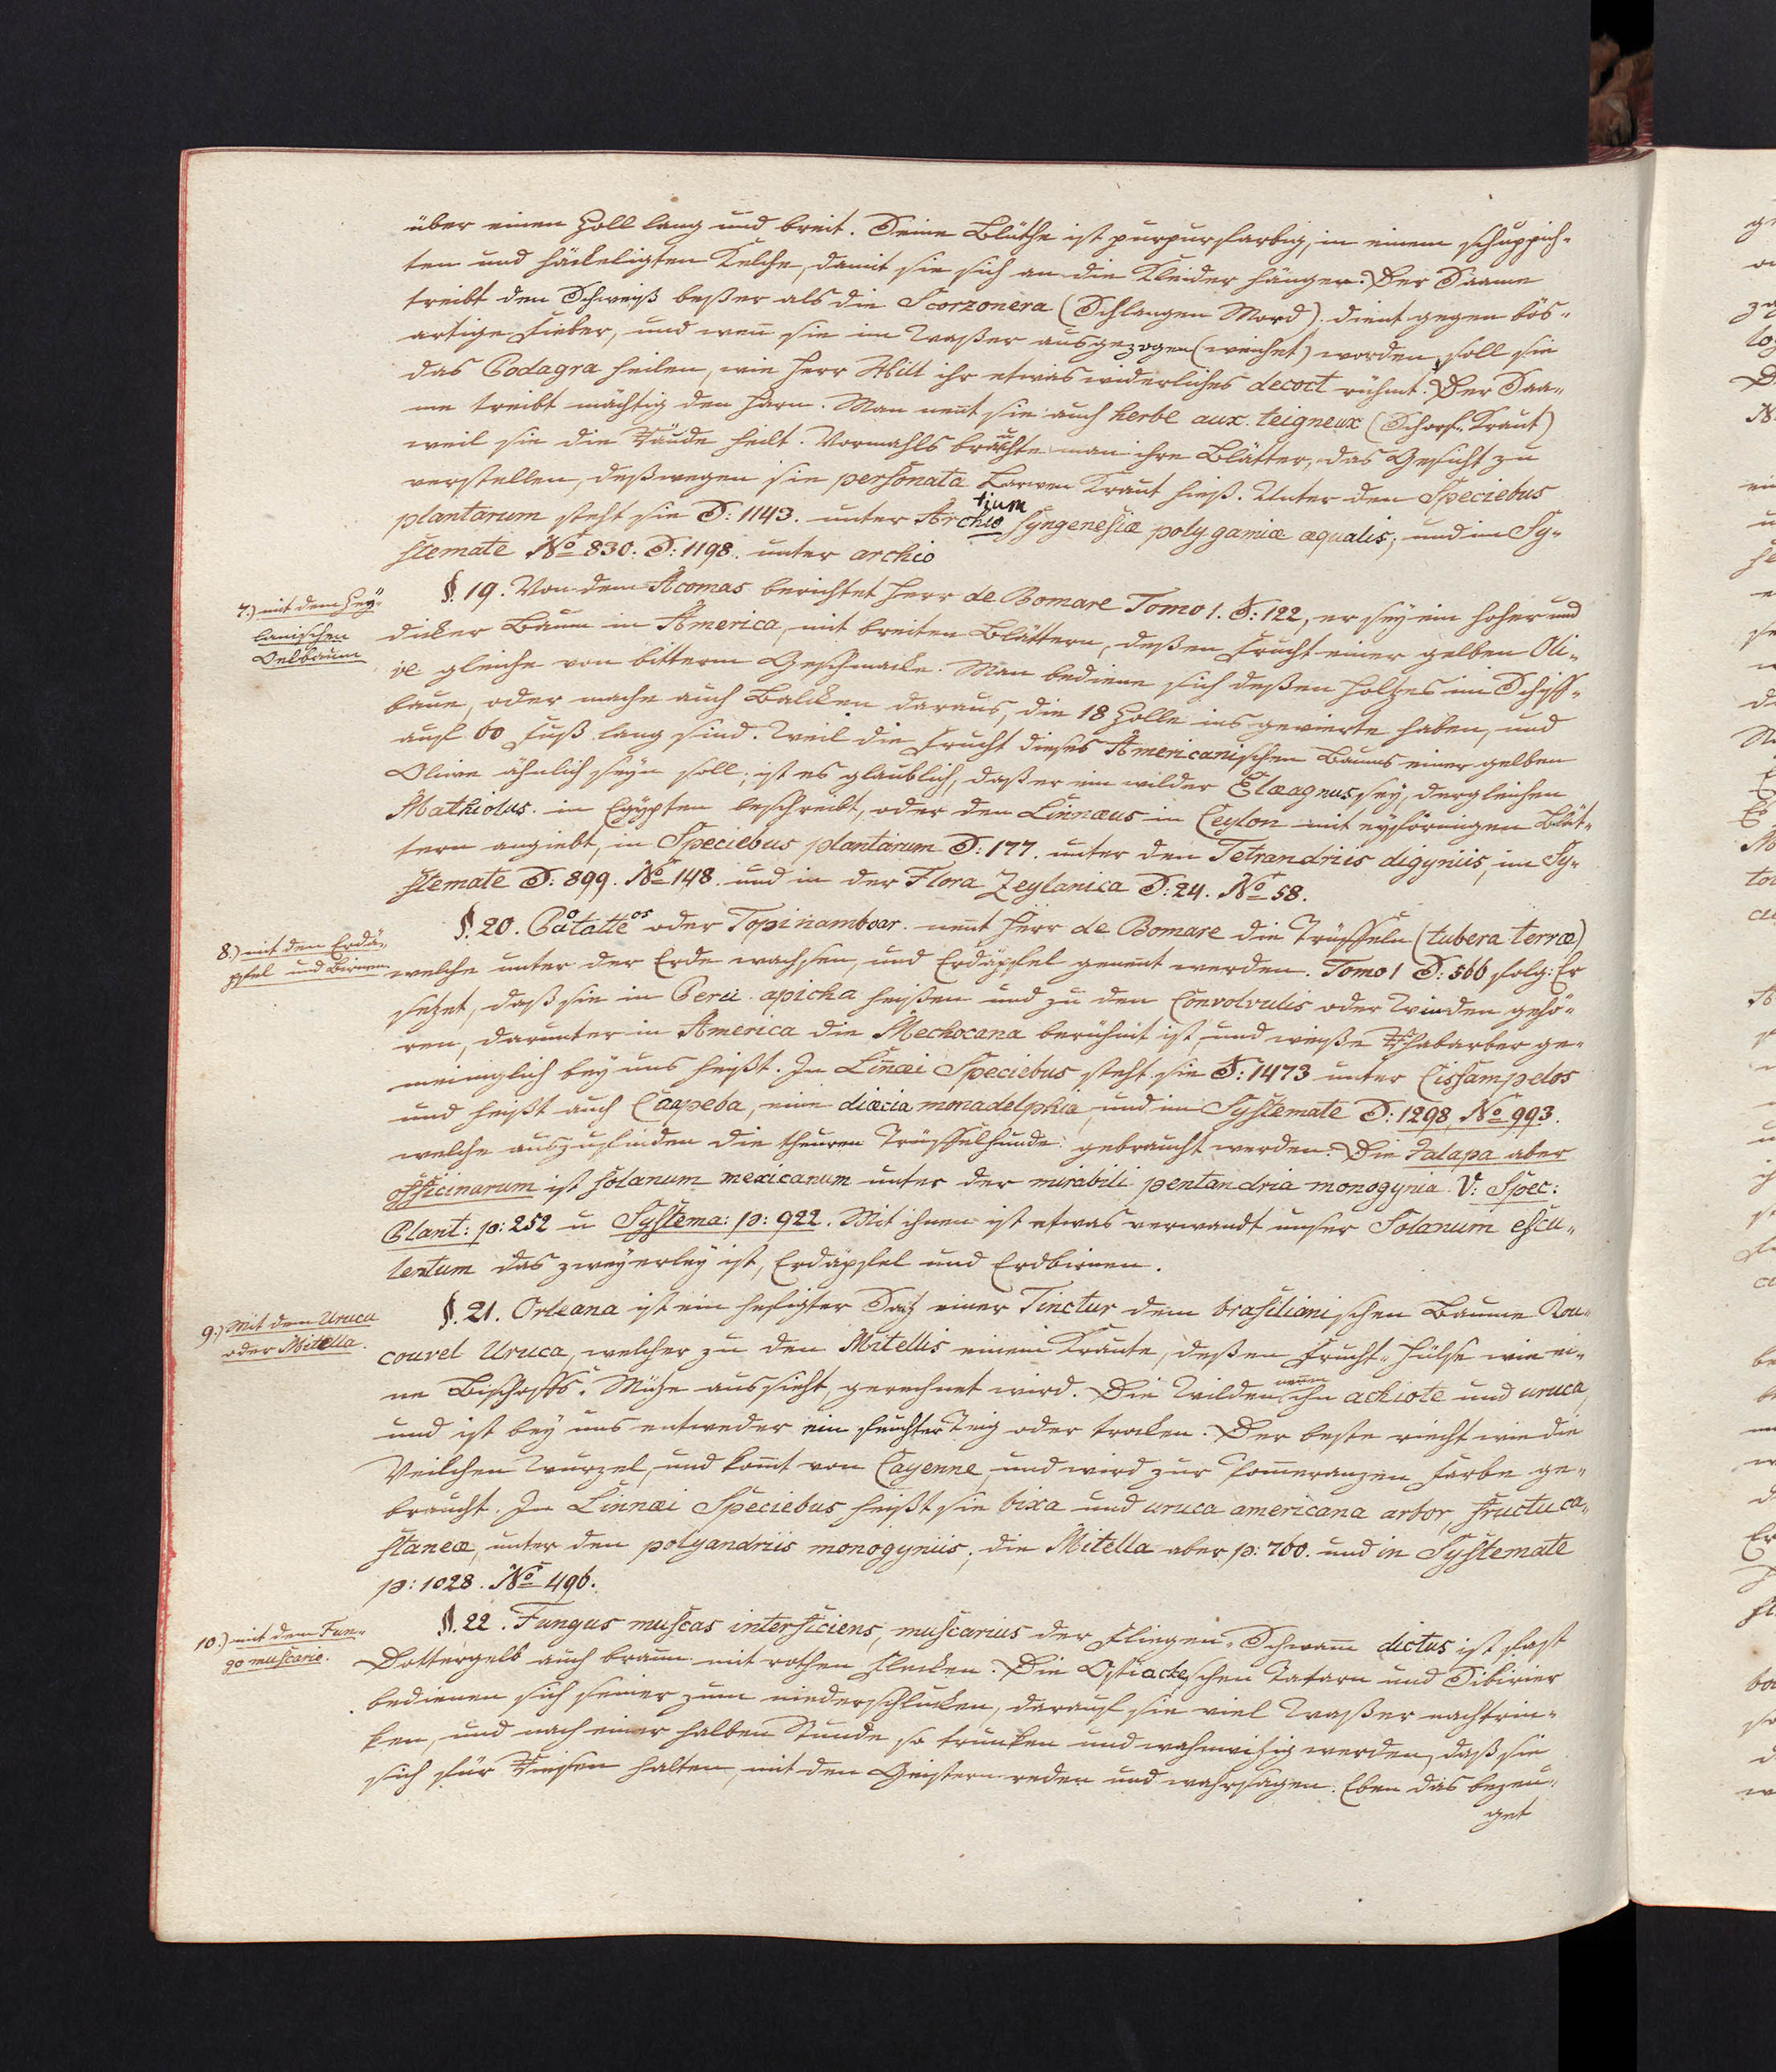 über einen Zoll lang und breit. Seine Blüthe ist purpurfarbig, in einem schuppich-
ten und häckeligten Kelche, damit sie sich an die Kleider hängen. Der Saame
treibt den Schweiß beßer als die Scorzonera (Schlangen Mord). dient gegen bös-
artige Fieber, und weñ sie im Waßer ausgezogen (weichet) worden, soll sie
das Podagra heilen, wie Herr Hill ihr etwas widerliches decoct rühmt. Der Saa-
me treibt mächtig den Harn. Man neñt sie auch herbe aux teigneux (Schorf-Kraut)
weil sie die Räude heilt. Vormahls brauchte man ihre Blätter, das Gesicht zu
verstellen, deßwegen sie personata Larven Kraut hieß. Unter den Speciebus
plantarum steht sie S: 1143. unter Archio tium Syngenesiæ polygamiæ æqualis; und im Sy-
stemate No 830. S: 1198. unter archio
7.) mit dem Zey-
lanischen
Oelbaum
§. 19. Von dem Acomas berichtet Herr de Bomare Tomo 1. S: 122, er sey ein hoher und
dicker Baum in America, mit breiten Blättern, deßen Frucht einer gelben Oli-
ve gleiche von bitterm Geschmacke. Man bediene sich deßen Holtzes im Schiff-
baue, oder mache auch Balcken daraus, die 18 Zolle ins gevierte haben, und
auf 60 Fuß lang sind. Weil die Frucht dieses Americanischen Baums einer gelben
Olive ähnlich seyn soll; ist es glaublich, daß er ein wilder Elæagnus sey, dergleichen
Mathiolus in Egypten beschreibt, oder den Linnæus in Ceylon mit eyförmigen Blät-
tern angiebt, in Speciebus plantarum S: 177. unter den Tetrandriis digyniis, im Sy-
stemate S: 899. No 148. und in der Flora Zeylanica S: 24. No 58.
8.) mit den Erdä-
pfel und Birnen
§. 20. Patattos oder Topinambour neñt Herr de Bomare die Trüffeln (tubera terræ)
welche unter der Erde wachsen, und Erdäpfel geneñt werden. Tomo 1 S: 566 folg: Er
setzet, daß sie in Peru apicha heißen und zu den Convolvulis oder Winden gehö-
ren, darunter in America die Mechocana berühmt ist, und weiße Rhabarber ge-
meiniglich bey uns heißt. In Linæi Speciebus steht sie S: 1473 unter Cissampelos
und heißt auch Caapeba, eine diæcia monadelphia, und im Systemate S: 1298, No 993.
welche auszufinden die theuren Trüffelhunde gebraucht werden. Die Jalapa aber
officinarum ist solanum mexicanum unter der mirabili pentandria monogynia. V: Spec:
Plant: p: 252 u Systema: p: 922. Mit ihnen ist etwas verwandt unser Solanum escu-
lentum das zweyerley ist, Erdäpfel und Erdbirnen.
9.) Mit dem Urucu
oder Mitella.
§. 21. Orleana ist ein hefigter Satz einer Tinctur dem brasilianischen Baume Rou-
couvel Uruca, welcher zu den Mitellis einem Kraute, deßen Frucht-Hülse wie ei-
ne Bischoffs-Mütze aussieht, gerechnet wird. Die Wilden neñen ihn achiote und uruca,
und ist bey uns entweder ein feuchter Teig oder trocken. Der beste riecht wie die
Veilchen Wurzel, und kom̃t von Cayenne, und wird zur Pom̃eranzen Farbe ge-
braucht. In Linnæi Speciebus heißt sie bixa und uruca americana arbor, fructu ca-
staneæ, unter den polyandriis monogyniis; die Mitella aber p: 760. und in Systemate
p: 1028. No 496.
10.) mit dem Fun-
go muscario.
§. 22. Fungus muscas interficiens, muscarius der Fliegen-Schwam̃ dictus ist fast
Dottergelb auch braun mit rothen Flecken. Die Ostiackischen Tatarn und Sibirier
bedienen sich seiner zum niederschlucken, darauf sie viel Waßer nachtrin-
ken, und nach einer halben Stunde so trunken und wahnwitzig werden, daß sie
sich für Riesen halten, mit den Geistern reden und wahrsagen. Eben das bezeu-
get